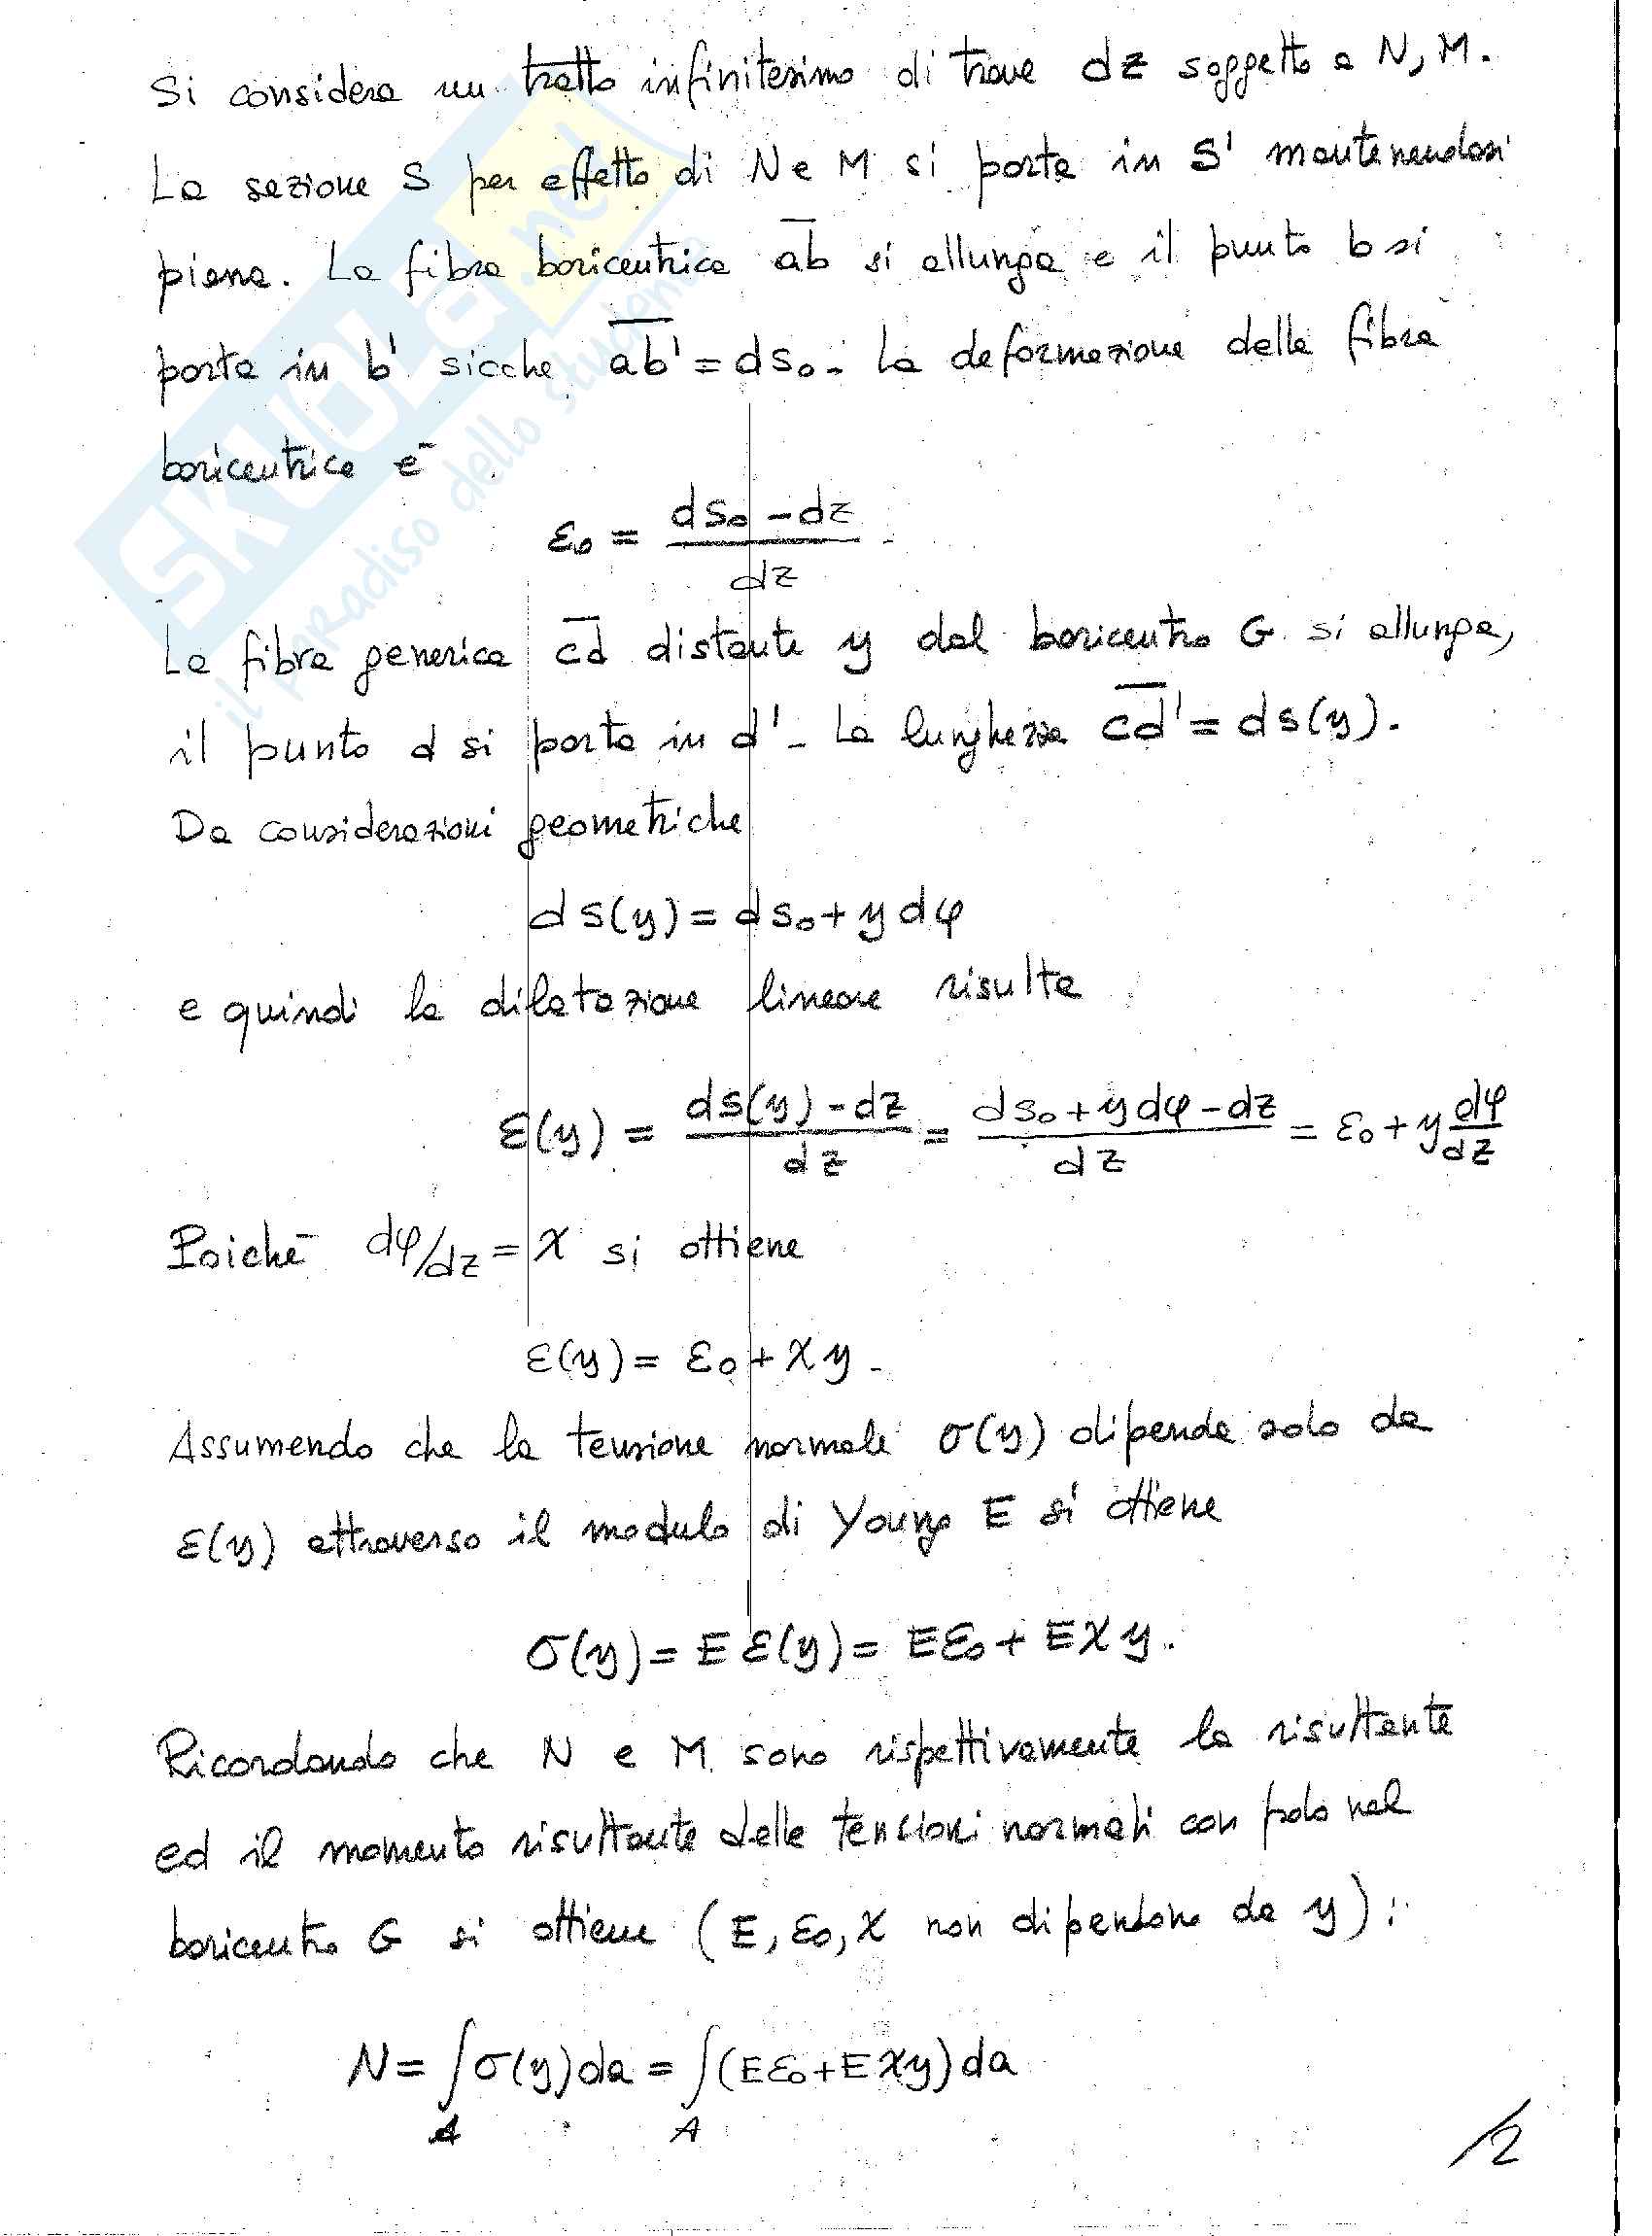 Si considera un tratto infinitesimo di trave dz soggetto a N, M.
La sezione S per effetto di N e M si porta in S' mantenendosi
piana. La fibra baricentrica ab si allunga e il punto b si
porta in b' sicche ab' = ds₀. La deformazione della fibra
baricentrica è
ε₀ = (ds₀ - dz)/dz
La fibra generica cd distante y dal baricentro G si allunga,
il punto d si porta in d'. La lunghezza cd' = ds(y).
Da considerazioni geometriche
ds(y) = ds₀ + y dφ
e quindi la dilatazione lineare risulta
ε(y) = (ds(y) - dz)/dz = (ds₀ + y dφ - dz)/dz = ε₀ + y dφ/dz
Poichè dφ/dz = χ si ottiene
ε(y) = ε₀ + χ y.
Assumendo che la tensione normale σ(y) dipenda solo da
ε(y) attraverso il modulo di Young E si ottiene
σ(y) = E ε(y) = Eε₀ + Eχ y.
Ricordando che N e M sono rispettivamente la risultante
ed il momento risultante delle tensioni normali con polo nel
baricentro G si ottiene (E, ε₀, χ non dipendono da y):
N = ∫_A σ(y) da = ∫_A (Eε₀ + Eχy) da
/2
SKUOLA.net
il paradiso dello studente